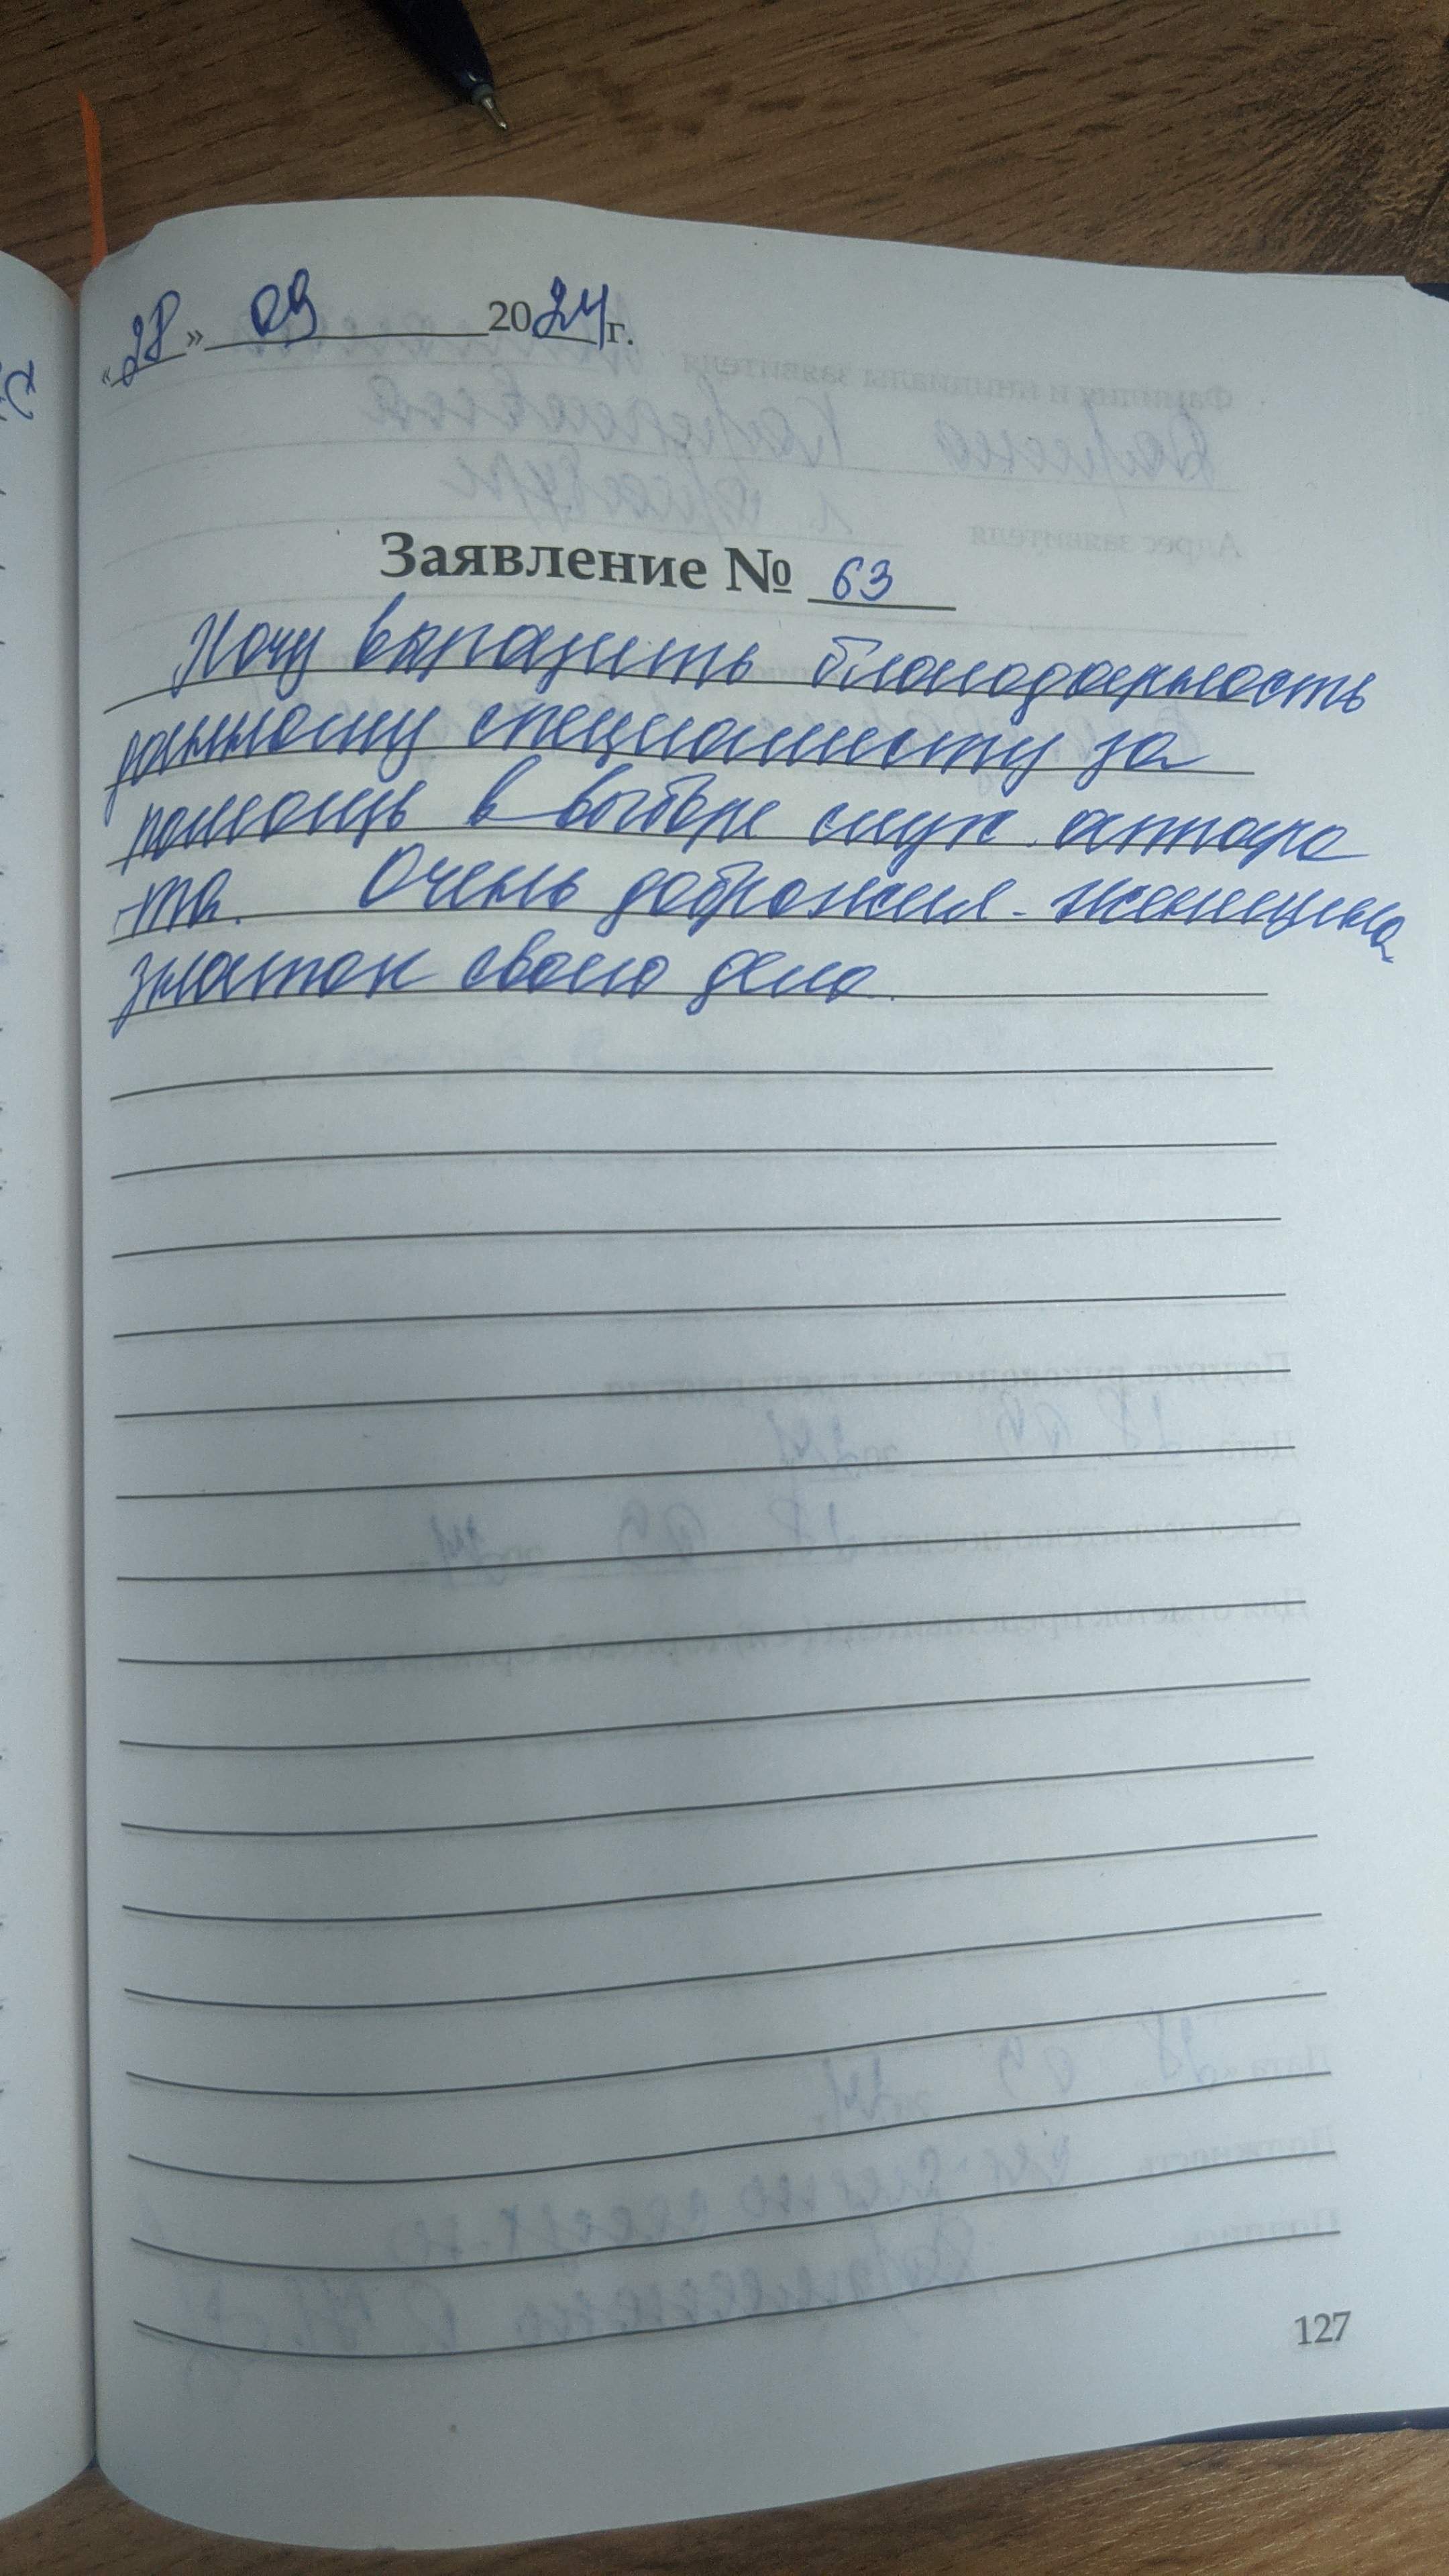 «28» 09 2024 г.
Заявление № 63
Хочу выразить благодарность
данному специалисту за
помощь в выборе слух. аппара
та. Очень доброжел. женщина
знаток своего дела.
127